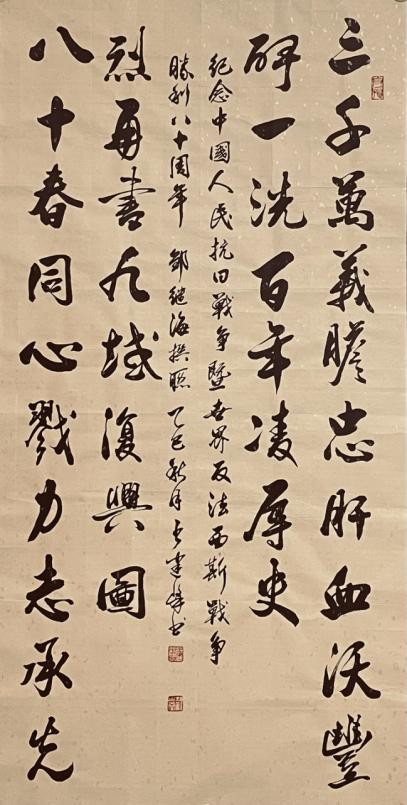 三千萬義膽忠肝血沃豐
碑一洗百年凌辱史
八十春同心戮力志承先
烈再書九域復興圖
紀念中國人民抗日戰爭暨世界反法西斯戰爭
勝利八十周年 鄒繼海撰聯 乙巳秋月 書